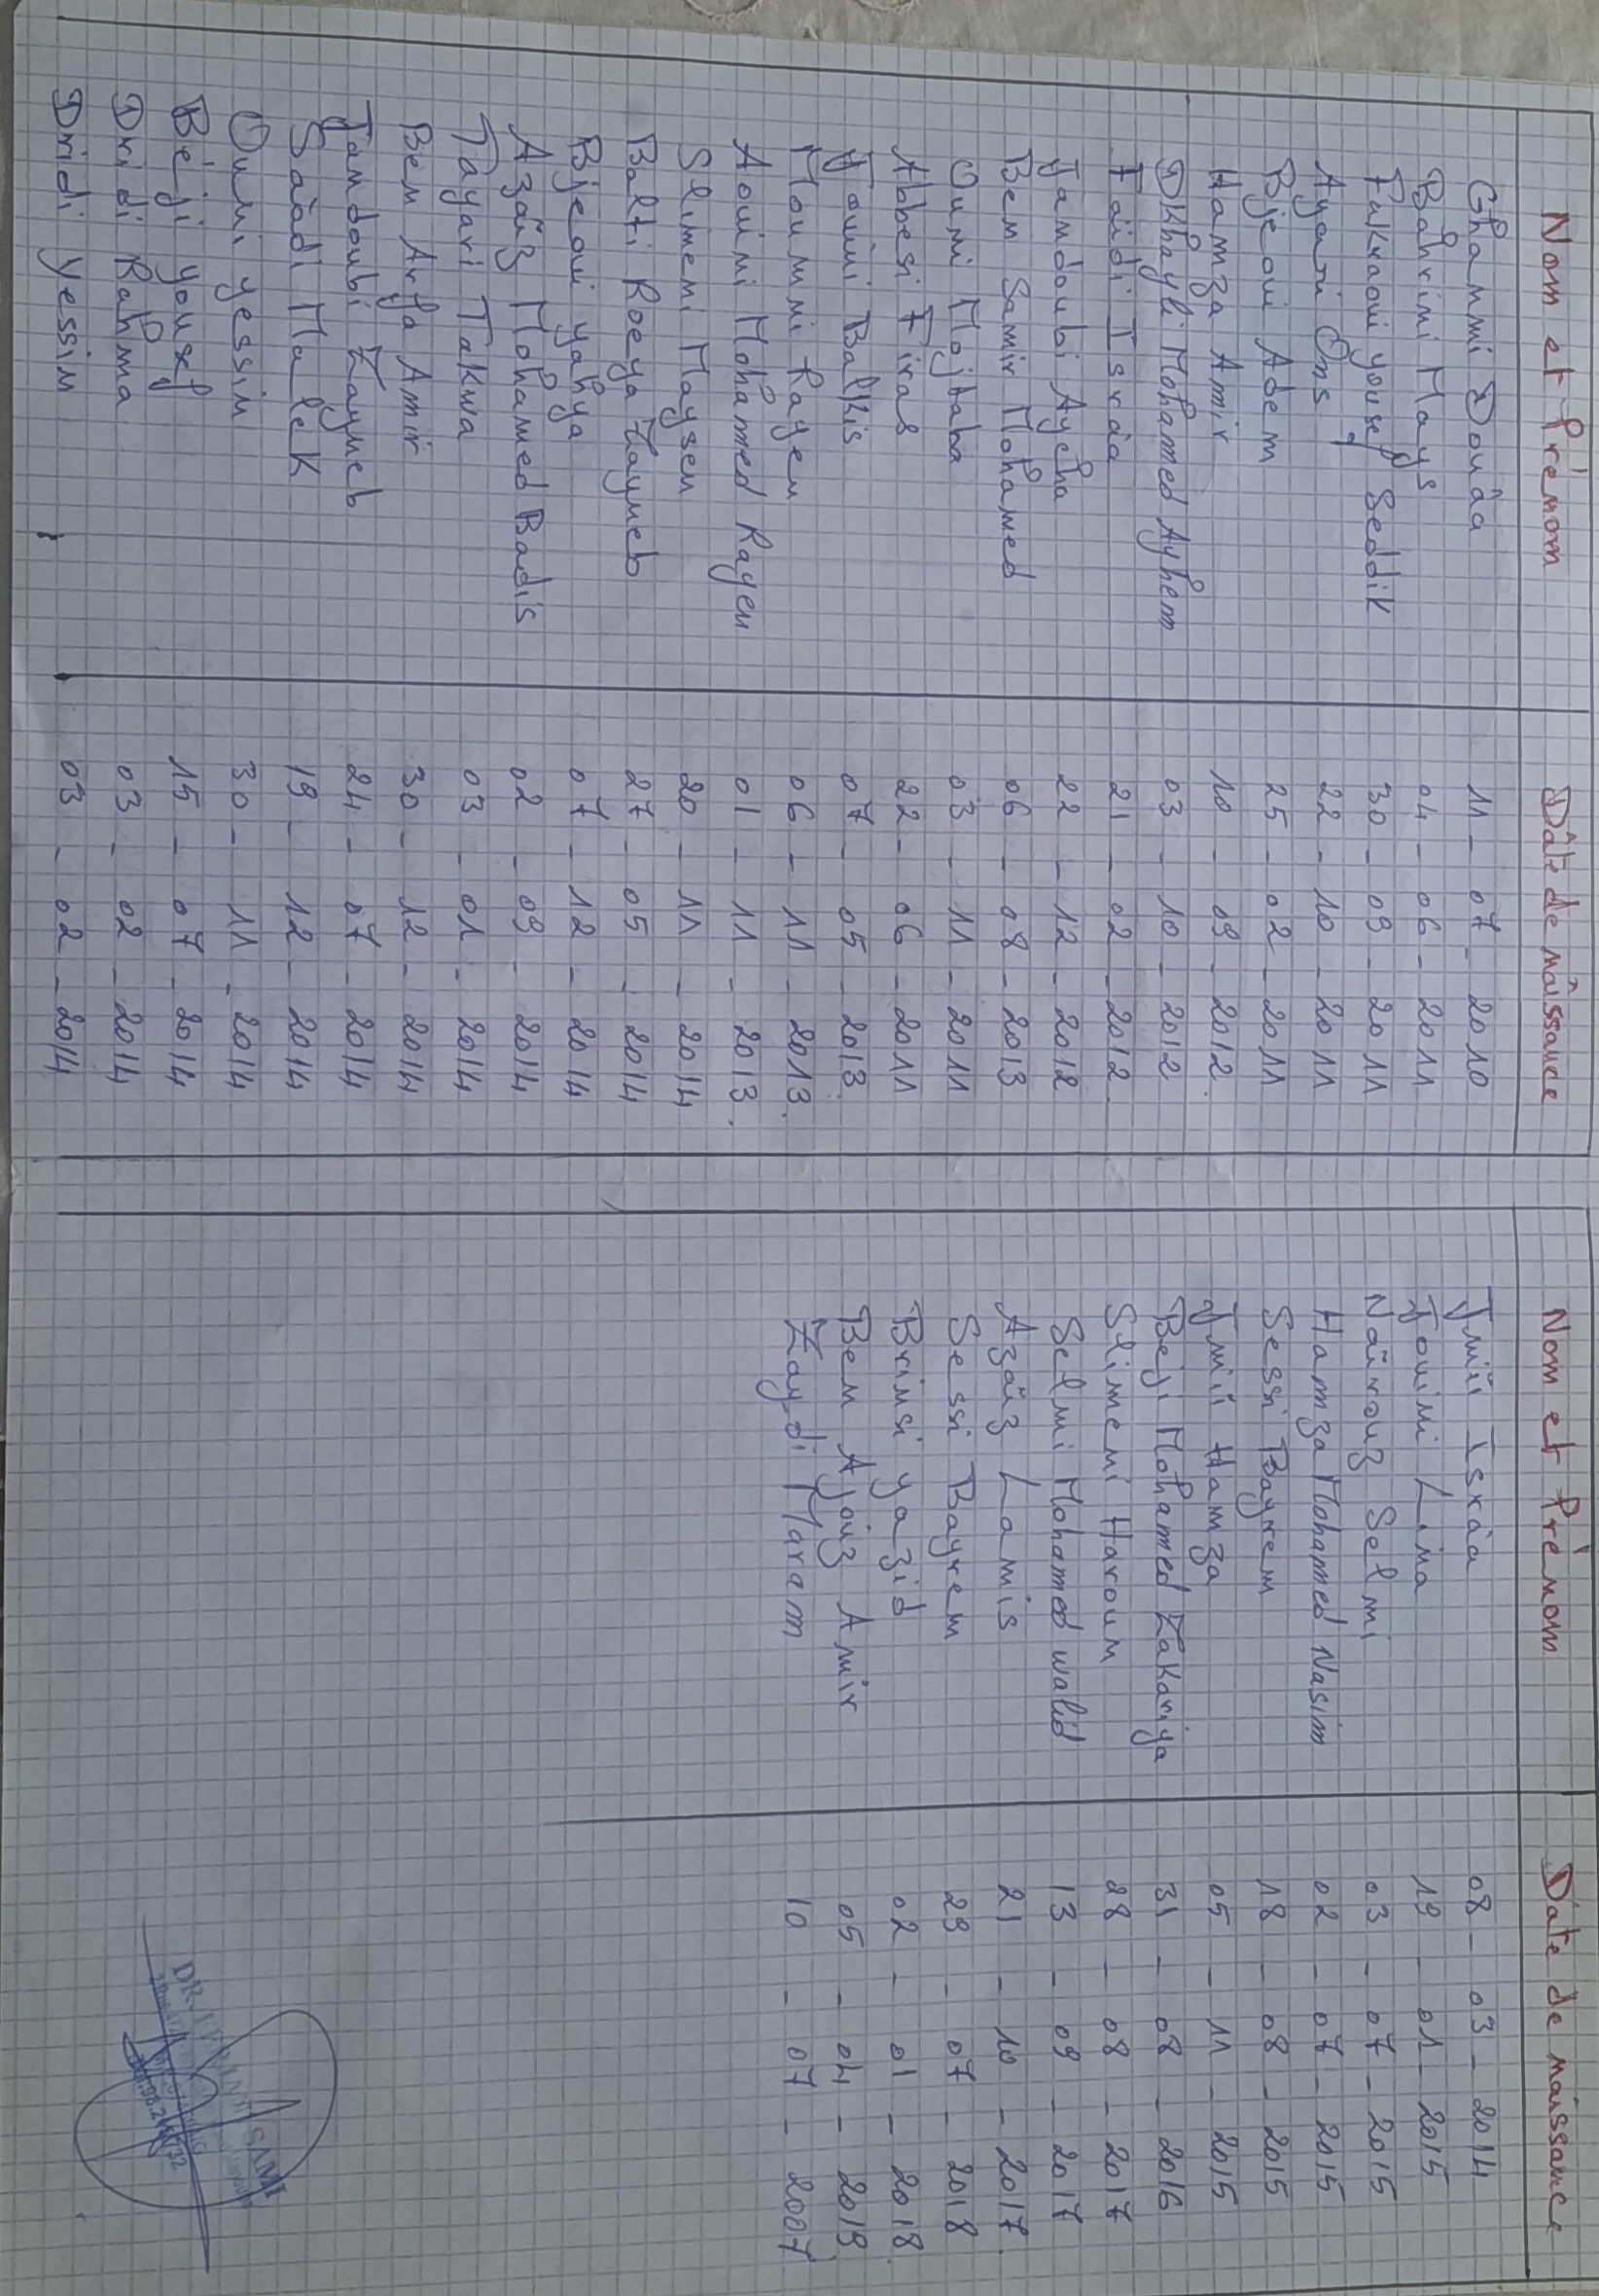 Nom et Prénom Dâte de nâissance
Ghammi Douâa 11-07-2010
Bahrini Mays 04-06-2011
Fakraoui yousef Seddik 30-09-2011
Ayari Ons 22-10-2011
Bjeoui Adem 25-02-2011
Hamza Amir 10-09-2012.
DKhayli Mohamed Ayhem 03-10-2012
Faidi Isráa 21-02-2012.
Jandoubi Aycha 22-12-2012
Ben Samir Mohamed 06-08-2013
Ouni Mojtaba 03-11-2011
Abbesi Firas 22-06-2011
Jouini Balkis 07-05-2013.
Moumni Rayen 06-11-2013.
Aouini Mohammed Rayen 01-11-2013.
Slimeni Maysen 20-11-2014
Balti Roeya Zayneb 27-05-2014
Bjeoui yahya 07-12-2014
Azaïz Mohamed Badis 02-09-2014
Tayari Takwa 03-01-2014
Ben Arfa Amir 30-12-2014
Jandoubi Zayneb 24-07-2014
Saâdi Malek 19-12-2014
Ouni yessin 30-11-2014
Béji yousef 15-07-2014
Dridi Rahma 03-02-2014
Dridi yessin 03-02-2014
Nom et Prénom Date de naissance
Jmïi Isráa 08-03-2014
Jouini Lina 19-01-2015
Naïrouz Selmi 03-07-2015
Hamza Mohammed Nasim 02-07-2015
Sessi Bayrem 18-08-2015
Jmïi Hamza 05-11-2015
Beji Mohamed Zakariya 31-08-2016
Slimeni Haroun 28-08-2017
Selmi Mohamed walid 13-09-2017
Azaïz Lamis 21-10-2017.
Sessi Bayrem 29-07-2018
Brinsi yazid 02-01-2018
Ben Ajouiz Amir 05-04-2019
Zaydi Maram 10-07-2007
DR. SAMI